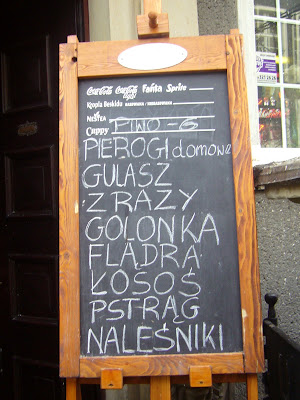 Coca-Cola Coca-Cola light Fanta Sprite
Kropla Beskidu
NESTEA
Cappy PIWO - 6
PIEROGI domowe
GULASZ
ZRAZY
GOLONKA
FLĄDRA
ŁOSOŚ
PSTRĄG
NALEŚNIKI